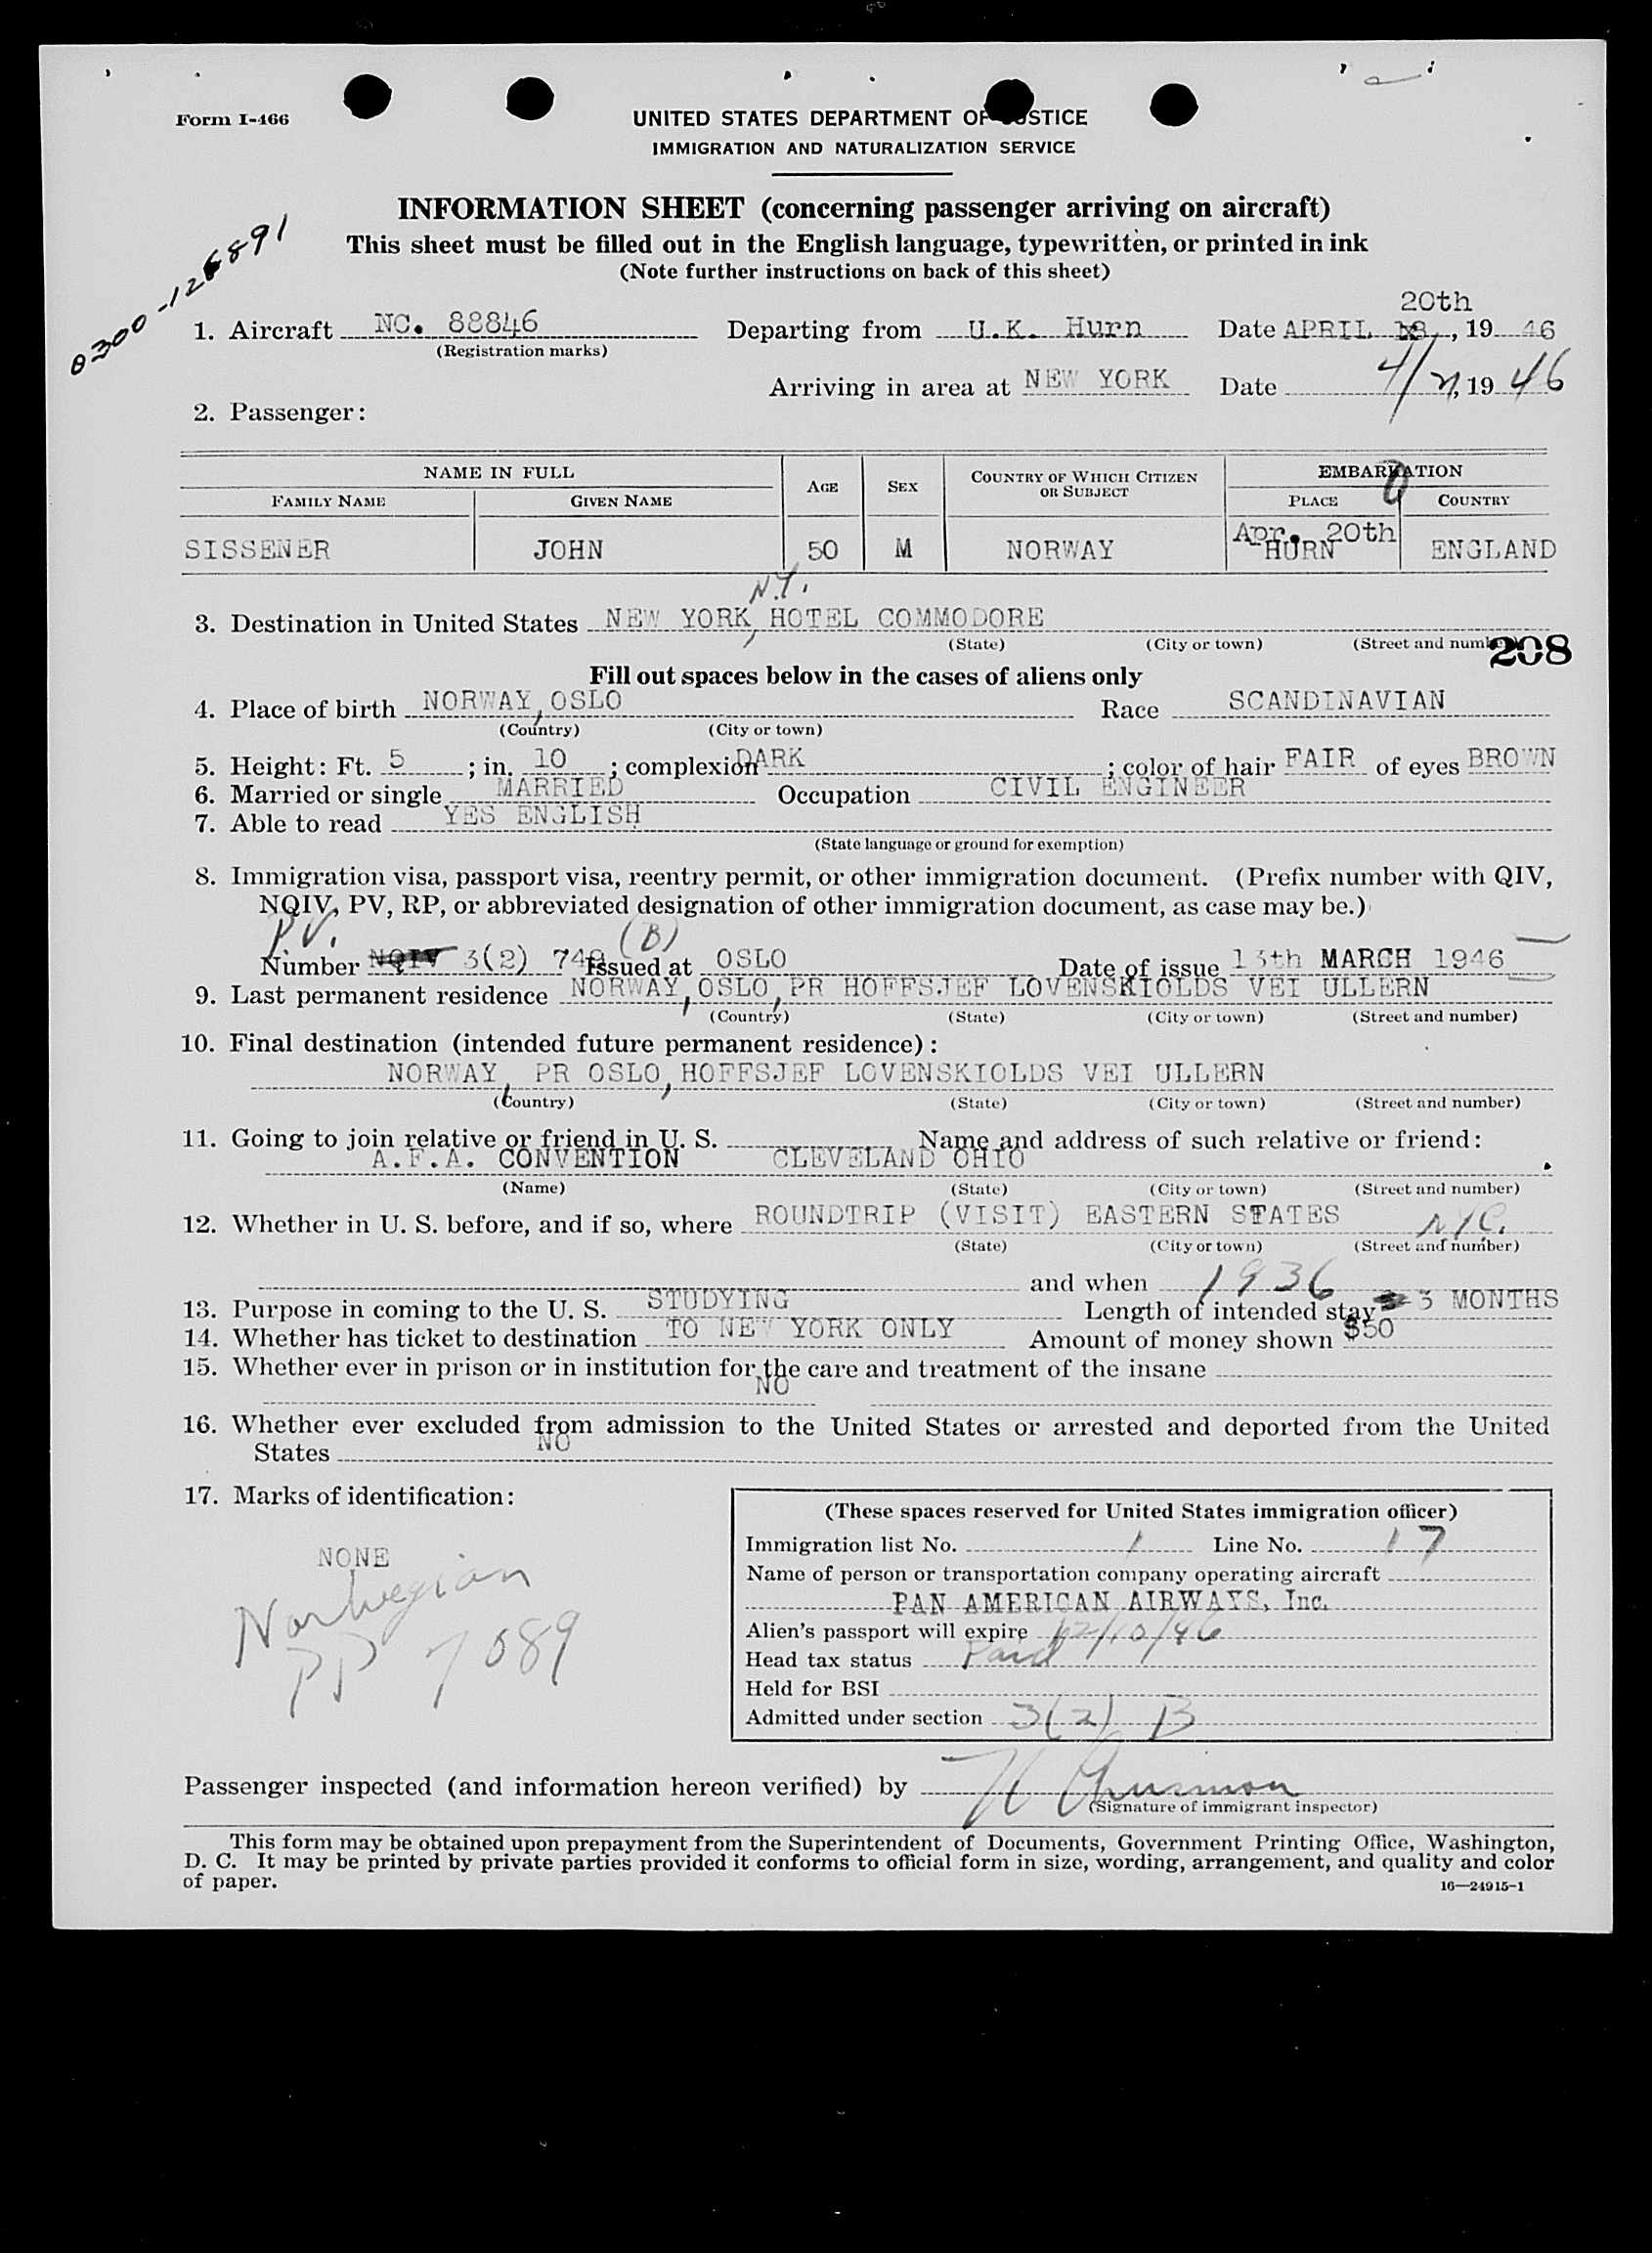 Form I-466
UNITED STATES DEPARTMENT OF JUSTICE
IMMIGRATION AND NATURALIZATION SERVICE
INFORMATION SHEET (concerning passenger arriving on aircraft)
This sheet must be filled out in the English language, typewritten, or printed in ink
(Note further instructions on back of this sheet)
0300-126891
20th
1. Aircraft NC. 88846 Departing from U.K. Hurn Date APRIL 18, 19 46
(Registration marks)
Arriving in area at NEW YORK Date 4/21, 19 46
2. Passenger:
NAME IN FULL AGE SEX COUNTRY OF WHICH CITIZEN OR SUBJECT EMBARKATION
FAMILY NAME GIVEN NAME PLACE COUNTRY
Apr. 20th
SISSENER JOHN 50 M NORWAY HURN ENGLAND
N.Y.
3. Destination in United States NEW YORK, HOTEL COMMODORE
(State) (City or town) (Street and number)
208
Fill out spaces below in the cases of aliens only
4. Place of birth NORWAY, OSLO Race SCANDINAVIAN
(Country) (City or town)
5. Height: Ft. 5; in. 10; complexion DARK; color of hair FAIR of eyes BROWN
6. Married or single MARRIED Occupation CIVIL ENGINEER
7. Able to read YES ENGLISH
(State language or ground for exemption)
8. Immigration visa, passport visa, reentry permit, or other immigration document. (Prefix number with QIV,
NQIV, PV, RP, or abbreviated designation of other immigration document, as case may be.)
P.V. (B)
Number NQIV 3(2) 749 Issued at OSLO Date of issue 13th MARCH 1946
9. Last permanent residence NORWAY, OSLO, PR HOFFSJEF LOVENSKIOLDS VEI ULLERN
(Country) (State) (City or town) (Street and number)
10. Final destination (intended future permanent residence):
NORWAY, PR OSLO, HOFFSJEF LOVENSKIOLDS VEI ULLERN
(Country) (State) (City or town) (Street and number)
11. Going to join relative or friend in U. S. Name and address of such relative or friend:
A.F.A. CONVENTION CLEVELAND OHIO
(Name) (State) (City or town) (Street and number)
12. Whether in U. S. before, and if so, where ROUNDTRIP (VISIT) EASTERN STATES NYC.
(State) (City or town) (Street and number)
and when 1936
13. Purpose in coming to the U. S. STUDYING Length of intended stay 3 MONTHS
14. Whether has ticket to destination TO NEW YORK ONLY Amount of money shown $50
15. Whether ever in prison or in institution for the care and treatment of the insane
NO
16. Whether ever excluded from admission to the United States or arrested and deported from the United
States NO
17. Marks of identification:
NONE
Norwegian
PP 7089
(These spaces reserved for United States immigration officer)
Immigration list No. 1 Line No. 17
Name of person or transportation company operating aircraft
PAN AMERICAN AIRWAYS, Inc.
Alien's passport will expire 12/10/46
Head tax status Paid
Held for BSI
Admitted under section 3(2) B
Passenger inspected (and information hereon verified) by
(Signature of immigrant inspector)
This form may be obtained upon prepayment from the Superintendent of Documents, Government Printing Office, Washington,
D. C. It may be printed by private parties provided it conforms to official form in size, wording, arrangement, and quality and color
of paper.
16—24915-1